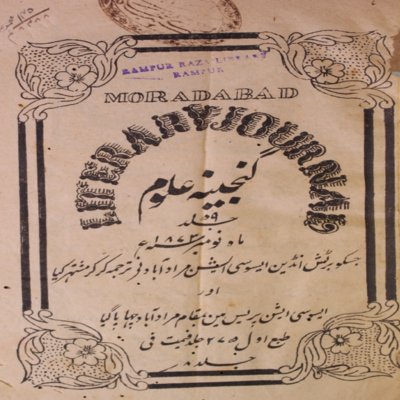 RAMPUR RAZA LIBRARY
RAMPUR
MORADABAD
LITERARY JOURNAL
گنجینہ علوم
جلد ۹
ماہ نومبر ۱۸۷۳ء
جسکو برٹش انڈین ایسوسی ایشن مرادآباد نے ترجمہ کر کر مشتہر کیا
اور
ایسوسی ایشن پریس مین بمقام مرادآباد چھاپا گیا
طبع اول ۲۷۵ جلد قیمت فی
جلد ۸